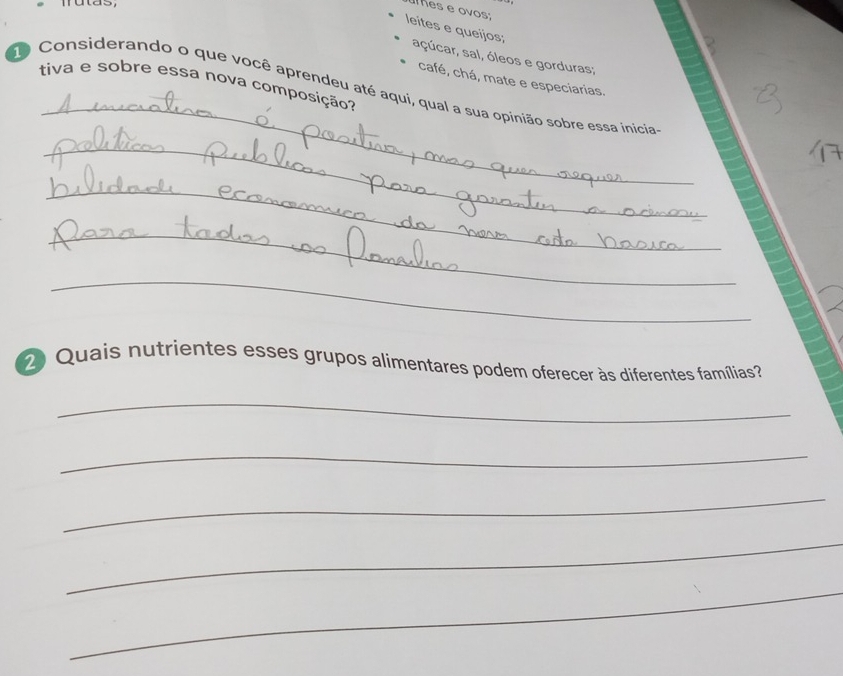 frutas;
carnes e ovos;
leites e queijos;
açúcar, sal, óleos e gorduras;
café, chá, mate e especiarias.
1 Considerando o que você aprendeu até aqui, qual a sua opinião sobre essa inicia-
tiva e sobre essa nova composição?
A iniciativa é positiva, mas quer requer
politicas Publicas para garantir a acessi
bilidade economica da nova cesta basica
Para todos os
2 Quais nutrientes esses grupos alimentares podem oferecer às diferentes famílias?
17